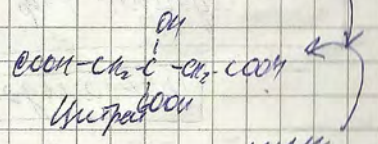 OH
COOH-CH₂-C-CH₂-COOH
COOH
Цитрат